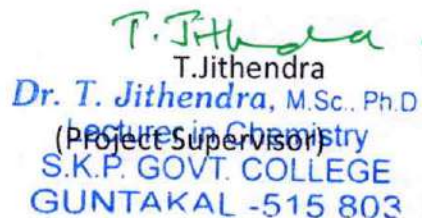 T. Jithendra
T.Jithendra
Dr. T. Jithendra, M.Sc., Ph.D
(Project Supervisor)
Lecturer in Chemistry
S.K.P. GOVT. COLLEGE
GUNTAKAL -515 803